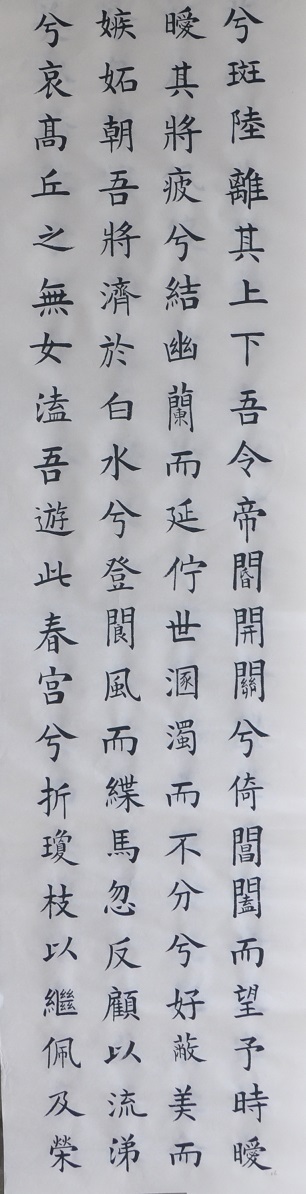 兮斑陸離其上下吾令帝閽開關兮倚閶闔而望予時曖
曖其將疲兮結幽蘭而延佇世溷濁而不分兮好蔽美而
嫉妬朝吾將濟於白水兮登閬風而緤馬忽反顧以流涕
兮哀髙丘之無女溘吾遊此春宮兮折瓊枝以繼佩及榮